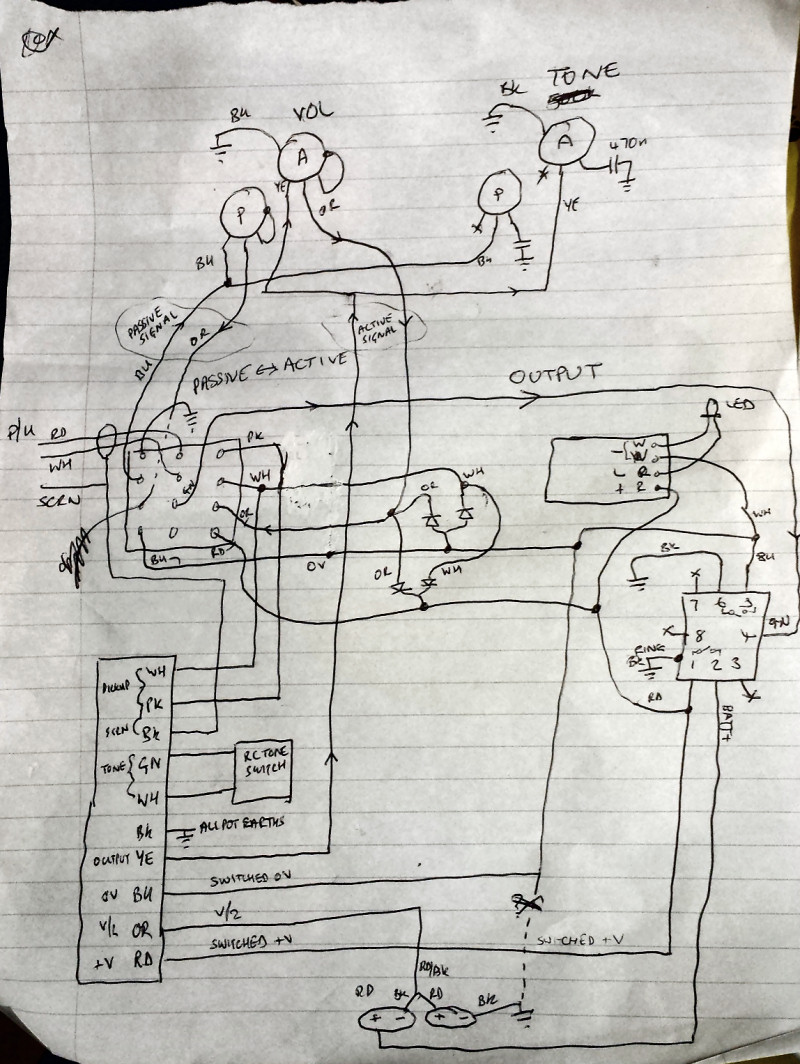 VOL
TONE
BK
BK
A
A
470n
YE
OR
P
P
YE
BU
BU
PASSIVE SIGNAL
OR
ACTIVE SIGNAL
BU
PASSIVE ↔ ACTIVE
OUTPUT
LED
P/U
RD
PK
WH
WH
WH
SCRN
GN
OR
OR
- W
- W
- R
+ R
WH
BU
RD
0V
OR
WH
BK
BU
7 6 5
8
4
GN
RING
BK
1 2 3
RD
BATT+
PICKUP
WH
PK
SCRN
BK
TONE
GN
WH
RC TONE SWITCH
BK
ALL POT EARTHS
OUTPUT YE
0V BU
SWITCHED 0V
V/2 OR
V/2
+V RD
SWITCHED +V
SWITCHED +V
RD/BK
RD
BK
RD
BK
+ -
+ -